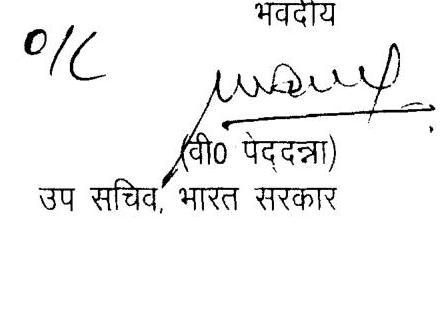 भवदीय
O/C
(वी0 पेद्दन्ना)
उप सचिव, भारत सरकार